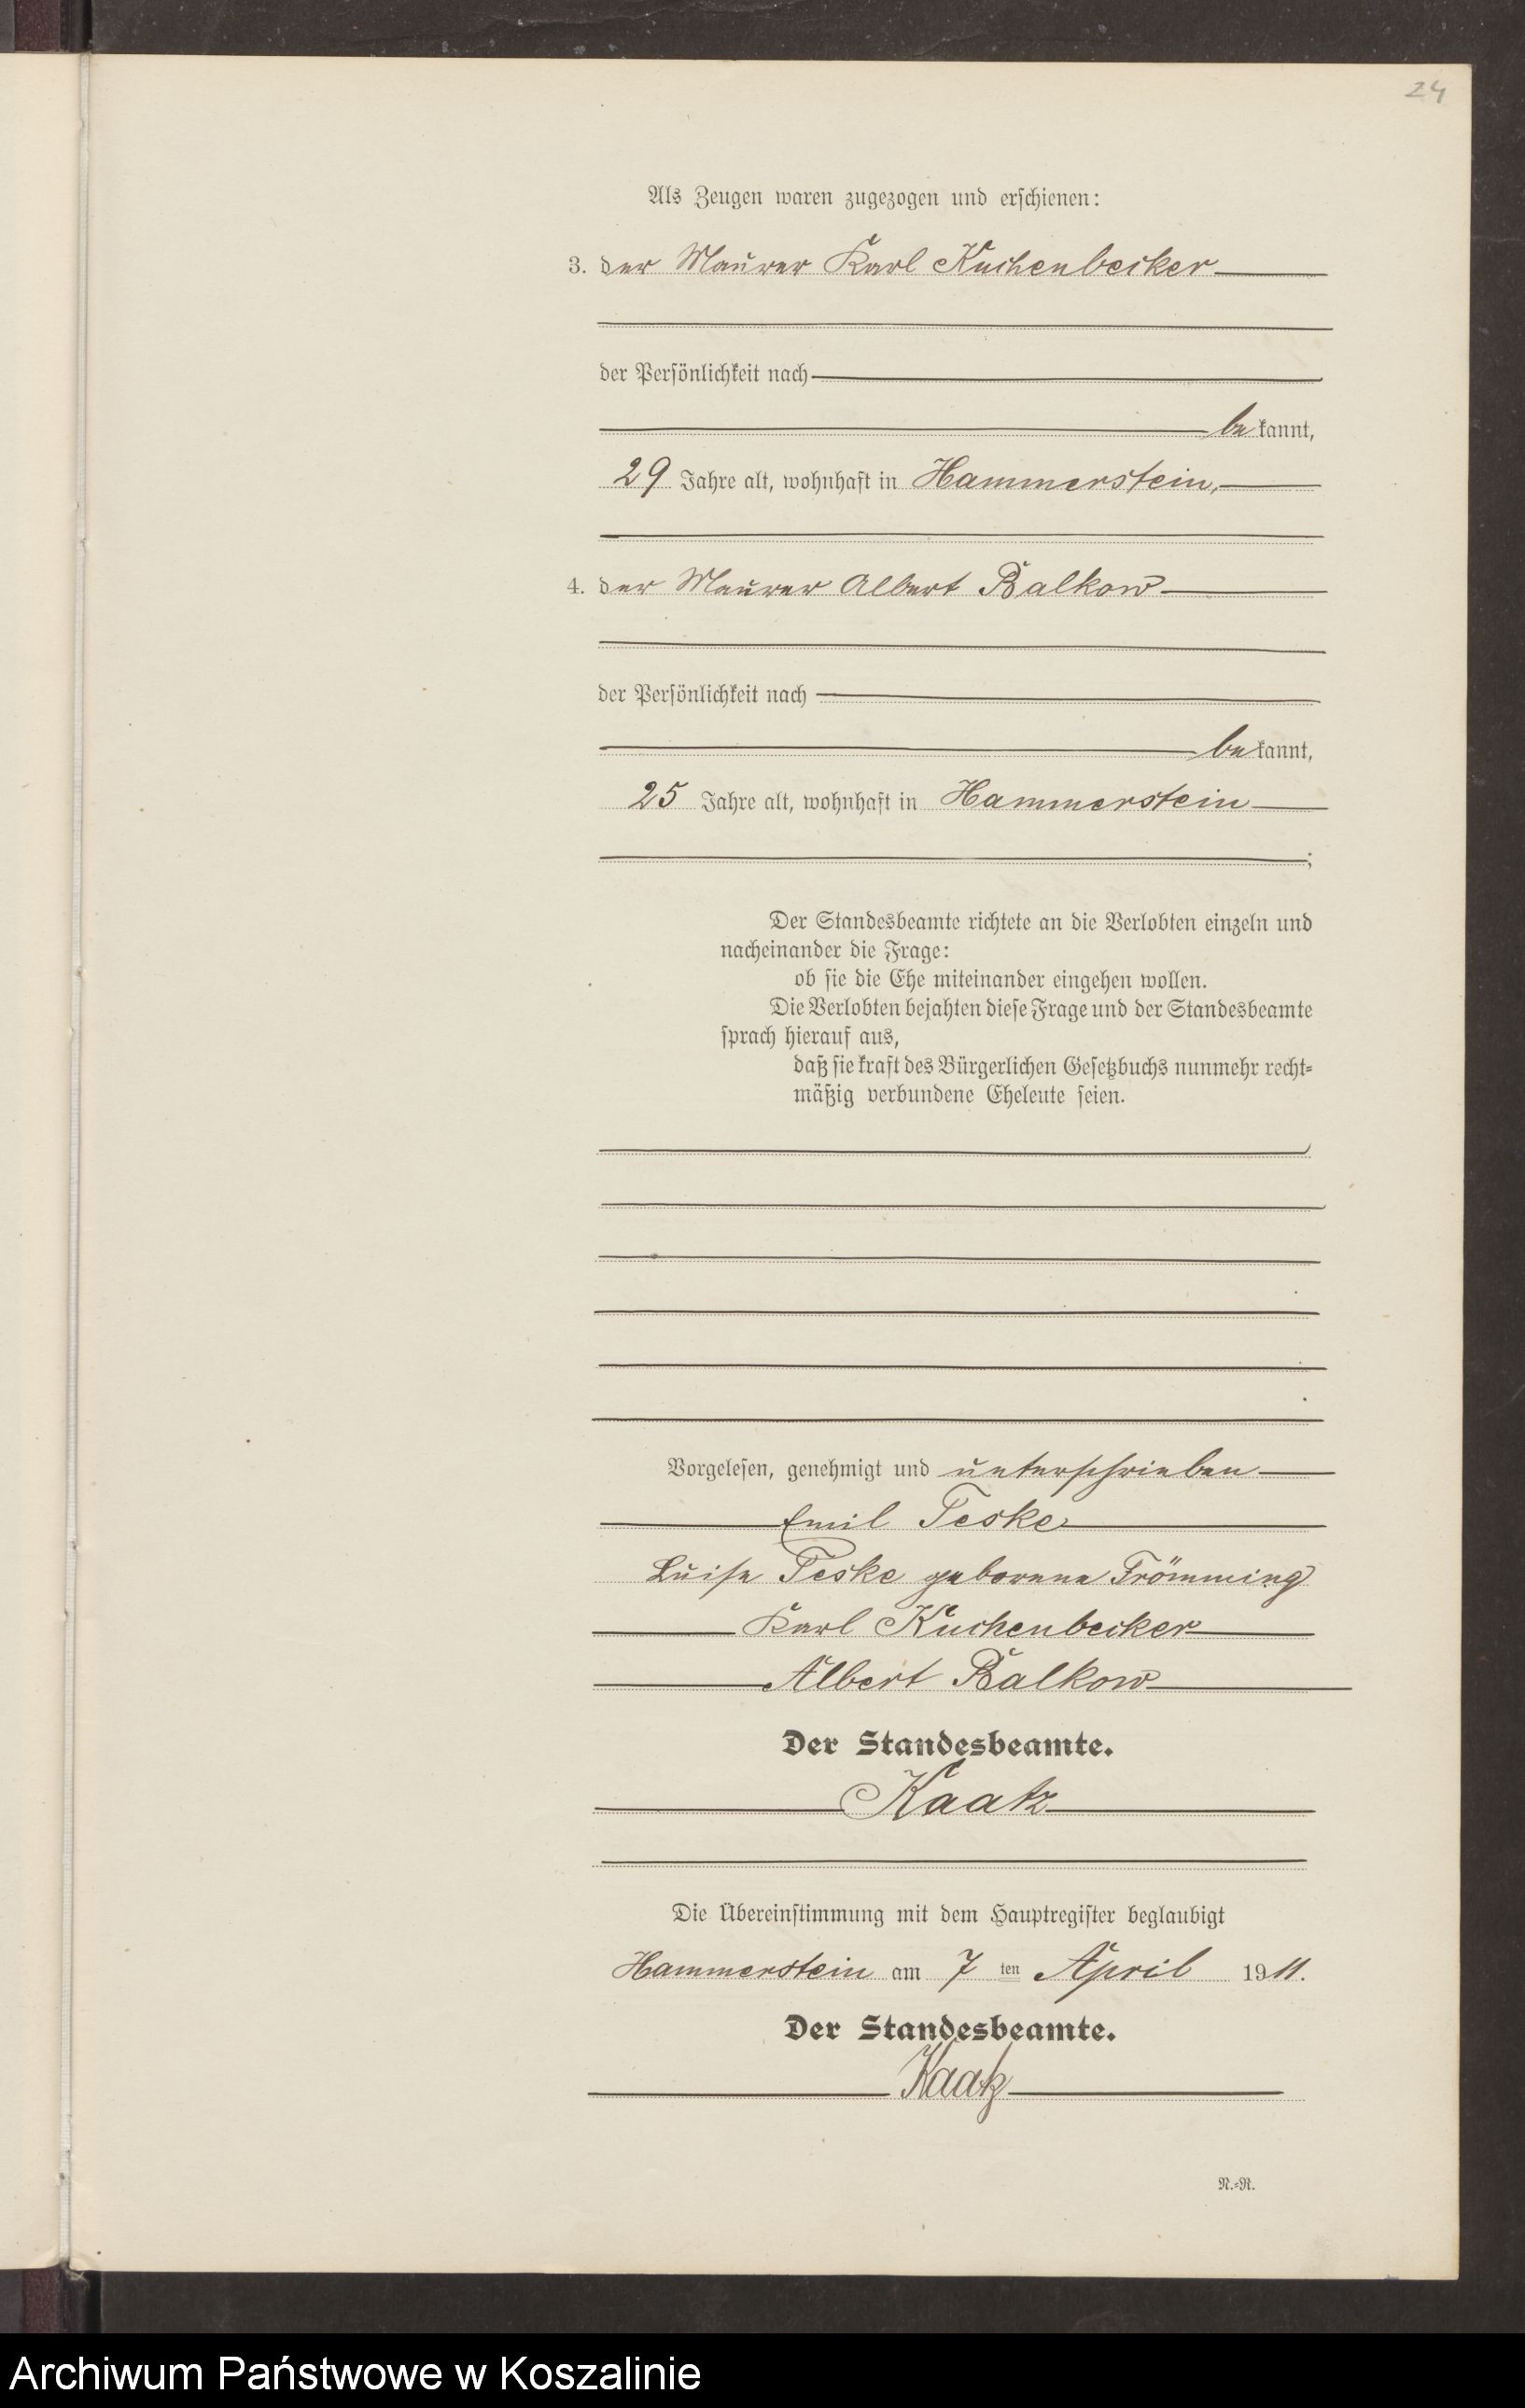 24
Als Zeugen waren zugezogen und erschienen:
3. der Maurer Karl Kuchenbecker
der Persönlichkeit nach
bekannt,
29 Jahre alt, wohnhaft in Hammerstein,
4. der Maurer Albert Balkow
der Persönlichkeit nach
bekannt,
25 Jahre alt, wohnhaft in Hammerstein
;
Der Standesbeamte richtete an die Verlobten einzeln und
nacheinander die Frage:
ob sie die Ehe miteinander eingehen wollen.
Die Verlobten bejahten diese Frage und der Standesbeamte
sprach hierauf aus,
daß sie kraft des Bürgerlichen Gesetzbuchs nunmehr recht-
mäßig verbundene Eheleute seien.
Vorgelesen, genehmigt und unterschrieben
Emil Teske
Luise Teske geborene Frömming
Karl Kuchenbecker
Albert Balkow
Der Standesbeamte.
Kaatz
Die Übereinstimmung mit dem Hauptregister beglaubigt
Hammerstein am 7 ten April 1911.
Der Standesbeamte.
Kaatz
N.-R.
Archiwum Państwowe w Koszalinie